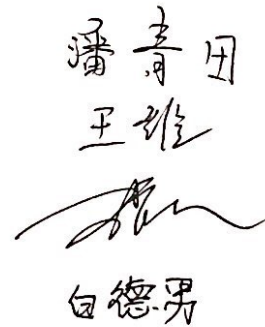 潘青田
王雄
白德男